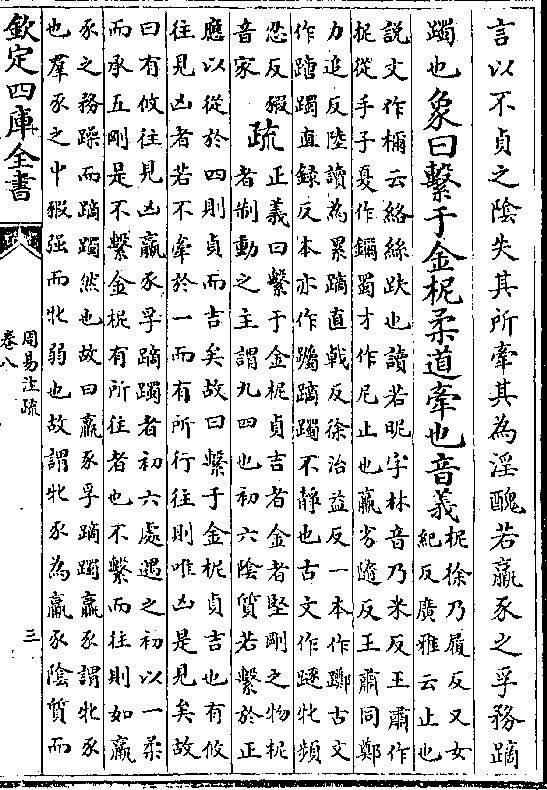 言以不貞之陰失其所牽其為淫醜若羸豕之孚務蹢
躅也象曰繫于金柅柔道牽也音義柅徐乃履反又女
紀反廣雅云止也
說文作檷云絡絲趺也讀若昵字林音乃米反王肅作
柅從手子夏作鑈蜀才作尼止也羸劣隨反王肅同鄭
力追反陸讀為累蹢直戟反徐治益反一本作躑古文
作蹢躅直録反本亦作躅蹢躅不靜也古文作逐牝頻
忍反豭
音家疏正義曰繫于金柅貞吉者金者堅剛之物柅
者制動之主謂九四也初六隂質若繫於正
應以從於四則貞而吉矣故曰繫于金柅貞吉也有攸
往見凶者若不牽於一而有所行往則唯凶是見矣故
曰有攸往見凶羸豕孚蹢躅者初六處遇之初以一柔
而承五剛是不繫金柅有所往者也不繫而往則如羸
豕之務躁而蹢躅然也故曰羸豕孚蹢躅羸豕謂牝豕
也羣豕之中豭强而牝弱也故謂牝豕為羸豕陰質而
欽定四庫全書
周易注疏
卷八
三